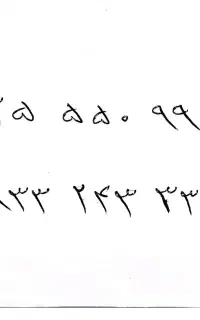 ۵ ۵۵۰ ۹۹
۳۳ ۲۴۳ ۳۳